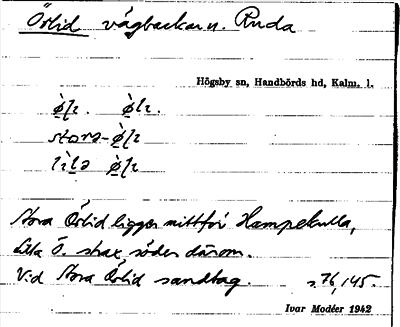 Örlid vägbackar n. Ruda
Högsby sn, Handbörds hd, Kalm. l.
Stora Örlid ligger mittför Hampekulla,
Lilla Ö. strax söder därom.
Vid Stora Örlid sandtag. s. 76, 145.
Ivar Modéer 1942